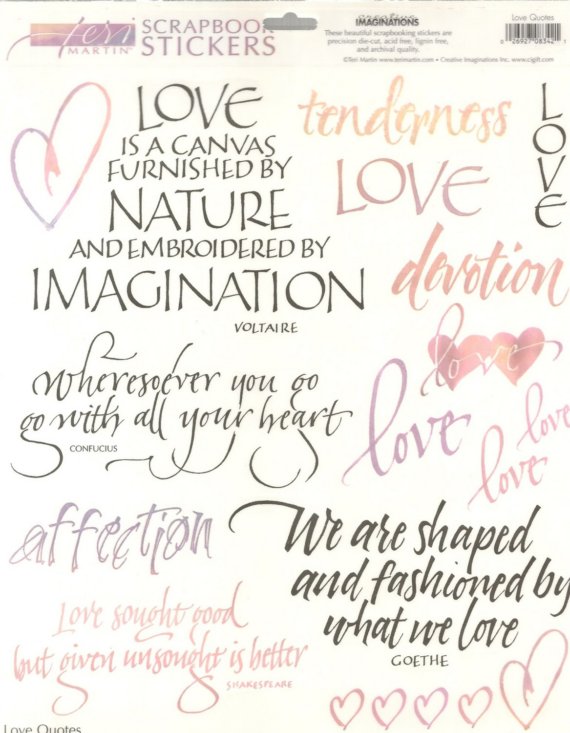 teri
MARTIN™
SCRAPBOOK
STICKERS
IMAGINATIONS
These beautiful scrapbooking stickers are
precision die-cut, acid free, lignin free,
and archival quality.
Love Quotes
0 26927 08342 1
©Teri Martin www.terimartin.com • Creative Imaginations Inc. www.cigift.com
LOVE
IS A CANVAS
FURNISHED BY
NATURE
AND EMBROIDERED BY
IMAGINATION
VOLTAIRE
tenderness
LOVE
LOVE
devotion
love
love
love
love
Wheresoever you go
go with all your heart
CONFUCIUS
affection
We are shaped
and fashioned by
what we love
GOETHE
Love sought good
but given unsought is better
SHAKESPEARE
Love Quotes